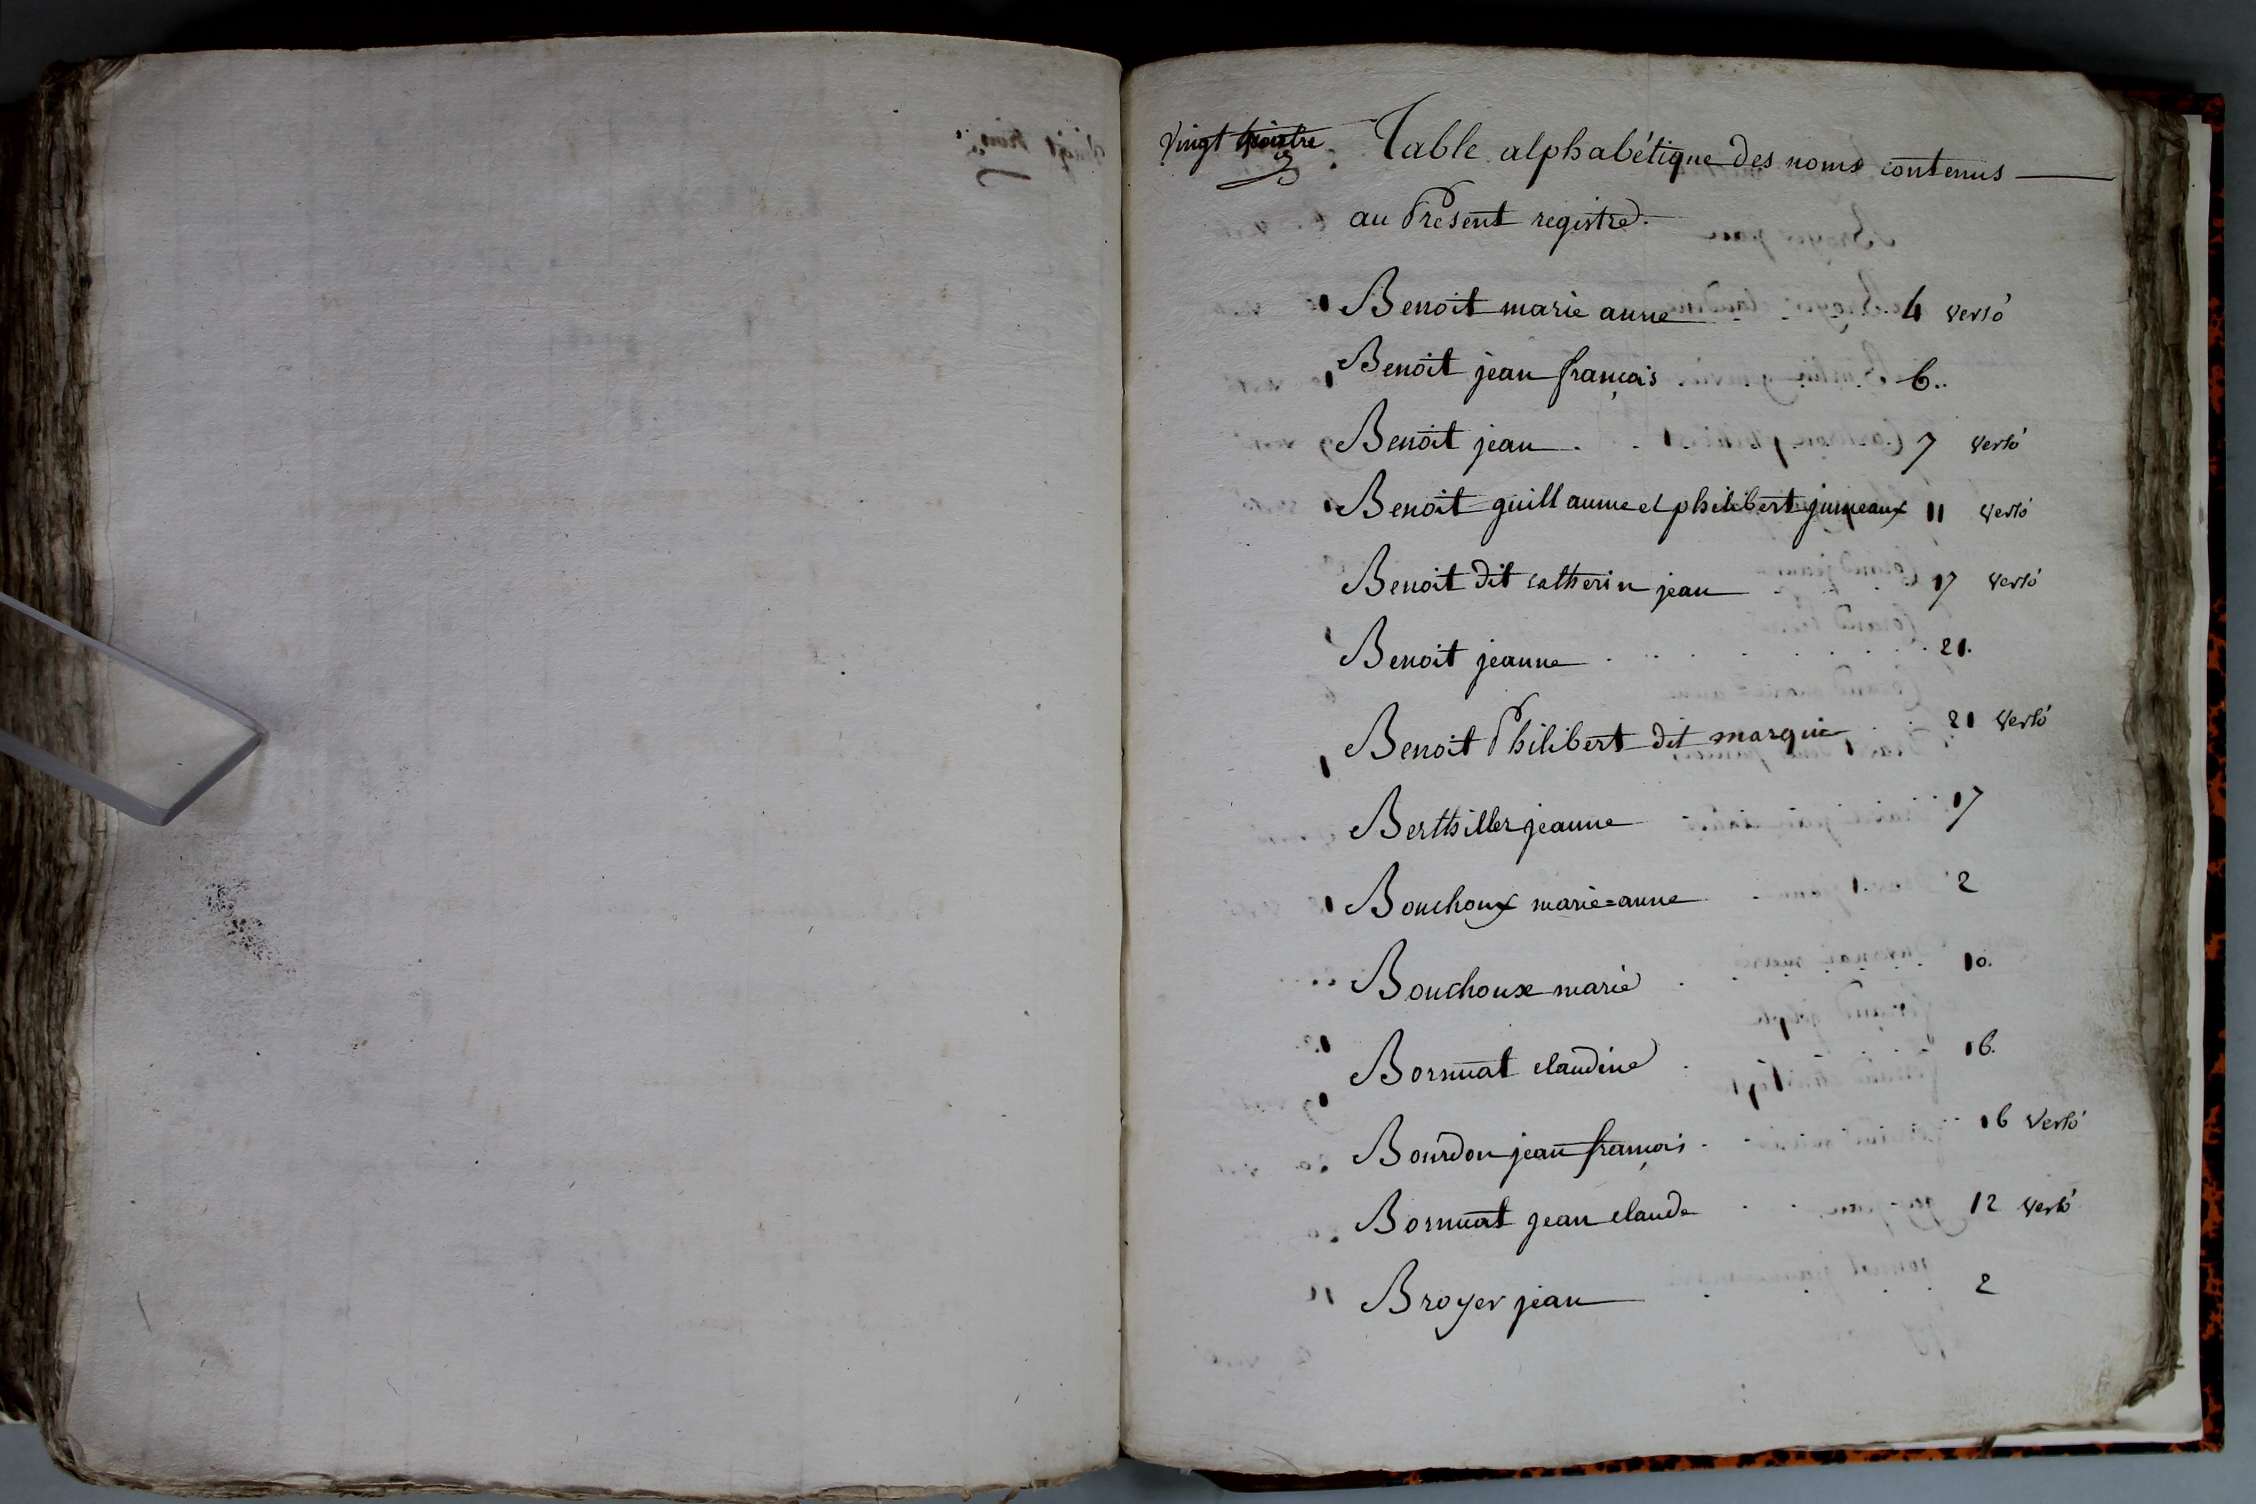 vingt quatre
Table alphabétique des noms contenus
au Présent registre.
Benoit marie anne 4 verso
Benoit jean françois 6..
Benoit jean 7 verso
Benoit guillaume et philibert jumeaux 11 verso
Benoit dit catherin jean 17 verso
Benoit jeanne 21.
Benoit Philibert dit marquis 21 verso
Berthiller jeanne 17
Bouchoux marie=anne 2
Bouchoux marie 10.
Bornuat claudine 16.
Bourdon jean françois 16 verso
Bornuat jean claude 12 verso
Broyer jean 2